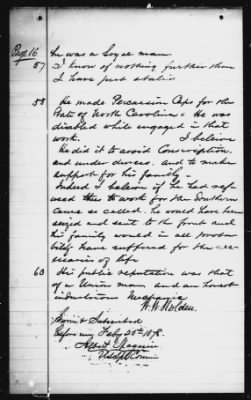 Page 16 he was a Loyal man.
57 I know of nothing further than
I have just stated
58 He made Percussion Caps for the
State of North Carolina. He was
disabled while engaged in that
work. I believe
He did it to avoid Conscription
and under duress. and to make
support for his family.
Indeed I believe if he had refu
used to work for the Southern
cause so called. he would have been
seized and sent to the front and
his family would in all proba
bility have suffered for the nec
essaries of life
60 His public reputation was that
of a Union man and an honest
industrious Mechanic
W. W. Holden.
Sworn & Subscribed
Before me Feby 25th 1875.
Albert Magnin